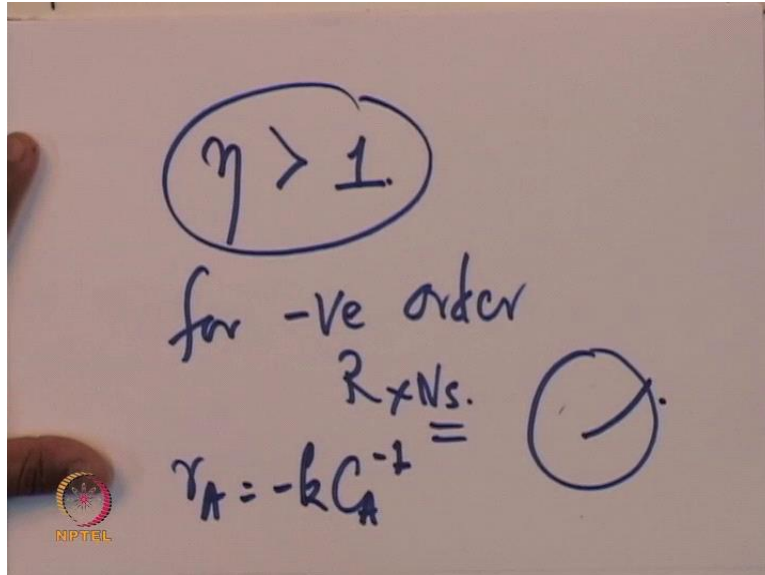 η > 1.
for -ve order
RxNs.
r_A = -k C_A^-1
NPTEL